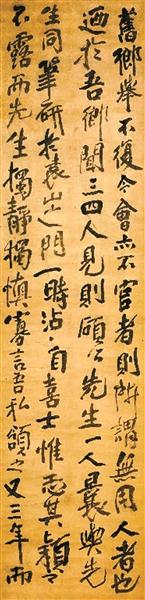 舊鄉舉不復今會亦不官者則所謂無用人者也
迺於吾鄉聞三四人見則顧公先生一人曩與先
生同筆研於袁之門一時沾沾自喜士惟恐其穎之
不露而先生獨靜獨慎寡言吾私頷之又三年而